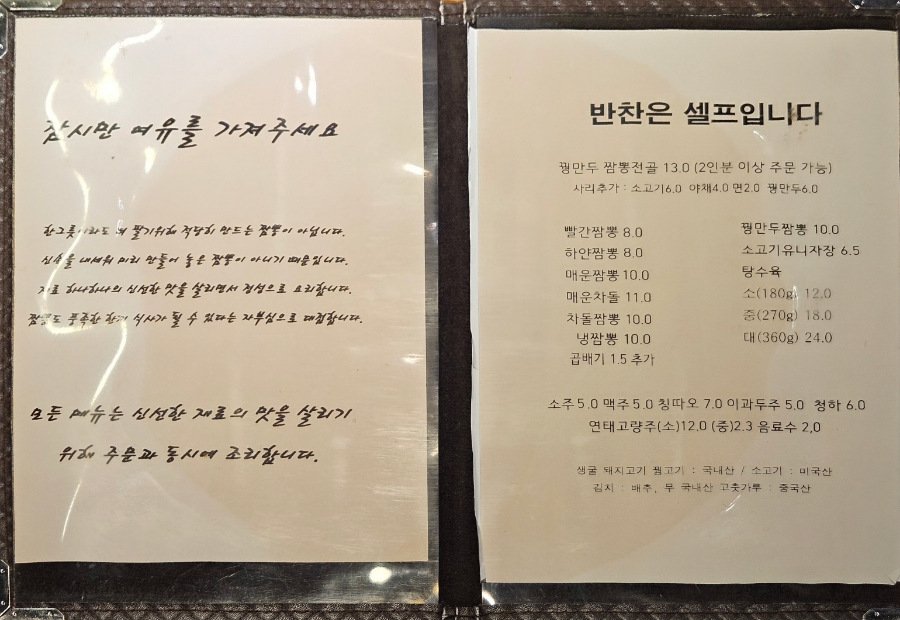 잠시만 여유를 가져주세요
한그릇이라도 더 팔기위해 적당히 만드는 짬뽕이 아닙니다.
신속을 내세워 미리 만들어 놓은 짬뽕이 아니기 때문입니다.
재료 하나하나의 신선한 맛을 살리면서 정성으로 요리합니다.
짬뽕도 풍족한 한끼 식사가 될 수 있다는 자부심으로 대접합니다.
모든 메뉴는 신선한 재료의 맛을 살리기
위해 주문과 동시에 조리합니다.
반찬은 셀프입니다
꿩만두 짬뽕전골 13.0 (2인분 이상 주문 가능)
사리추가 : 소고기6.0 야채4.0 면2.0 꿩만두6.0
빨간짬뽕 8.0
하얀짬뽕 8.0
매운짬뽕 10.0
매운차돌 11.0
차돌짬뽕 10.0
냉짬뽕 10.0
곱배기 1.5 추가
꿩만두짬뽕 10.0
소고기유니자장 6.5
탕수육
소(180g) 12.0
중(270g) 18.0
대(360g) 24.0
소주5.0 맥주5.0 칭따오 7.0 이과두주 5.0 청하 6.0
연태고량주(소)12.0 (중)2.3 음료수 2,0
생굴 돼지고기 꿩고기 : 국내산 / 소고기 : 미국산
김치 : 배추, 무 국내산 고춧가루 : 중국산